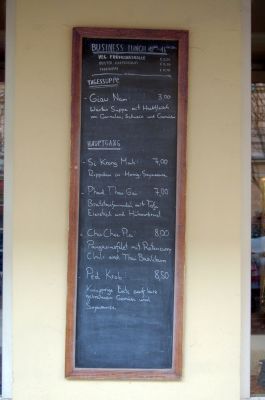 BUSINESS LUNCH
VEG. FRÜHLINGSROLLE
TAGESSUPPE
- Giau Nam 3,00
Suppe mit Hackfleisch
von Garnelen, Schwein und Gemüse
HAUPTGANG
- Si Krong Muh: 7,00
Rippchen in Honig-Sojasauce
- Phad Thai Gai 7,00
Bratbandnudeln mit Tofu,
Eierstich und Hühnerfleisch
- Chu Chee Pla: 8,00
Pangasiusfilet mit Rotem Curry
Chili und Thai Basilikum
- Ped Krob: 8,50
Knusprige Ente auf
gebratenem Gemüse und
Sojasauce.